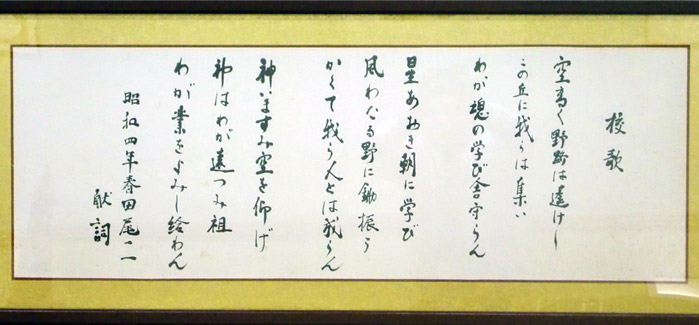 校歌
空高く野路は遠けし
この丘に我らは集い
わが魂の学び舎守らん
星あおき朝に学び
風わたる野に鋤振う
かくて我ら人とは成らん
神います み空を仰げ
神はわが遠つみ祖
わが業をよみし給わん
昭和四年春田尾一一
献詞